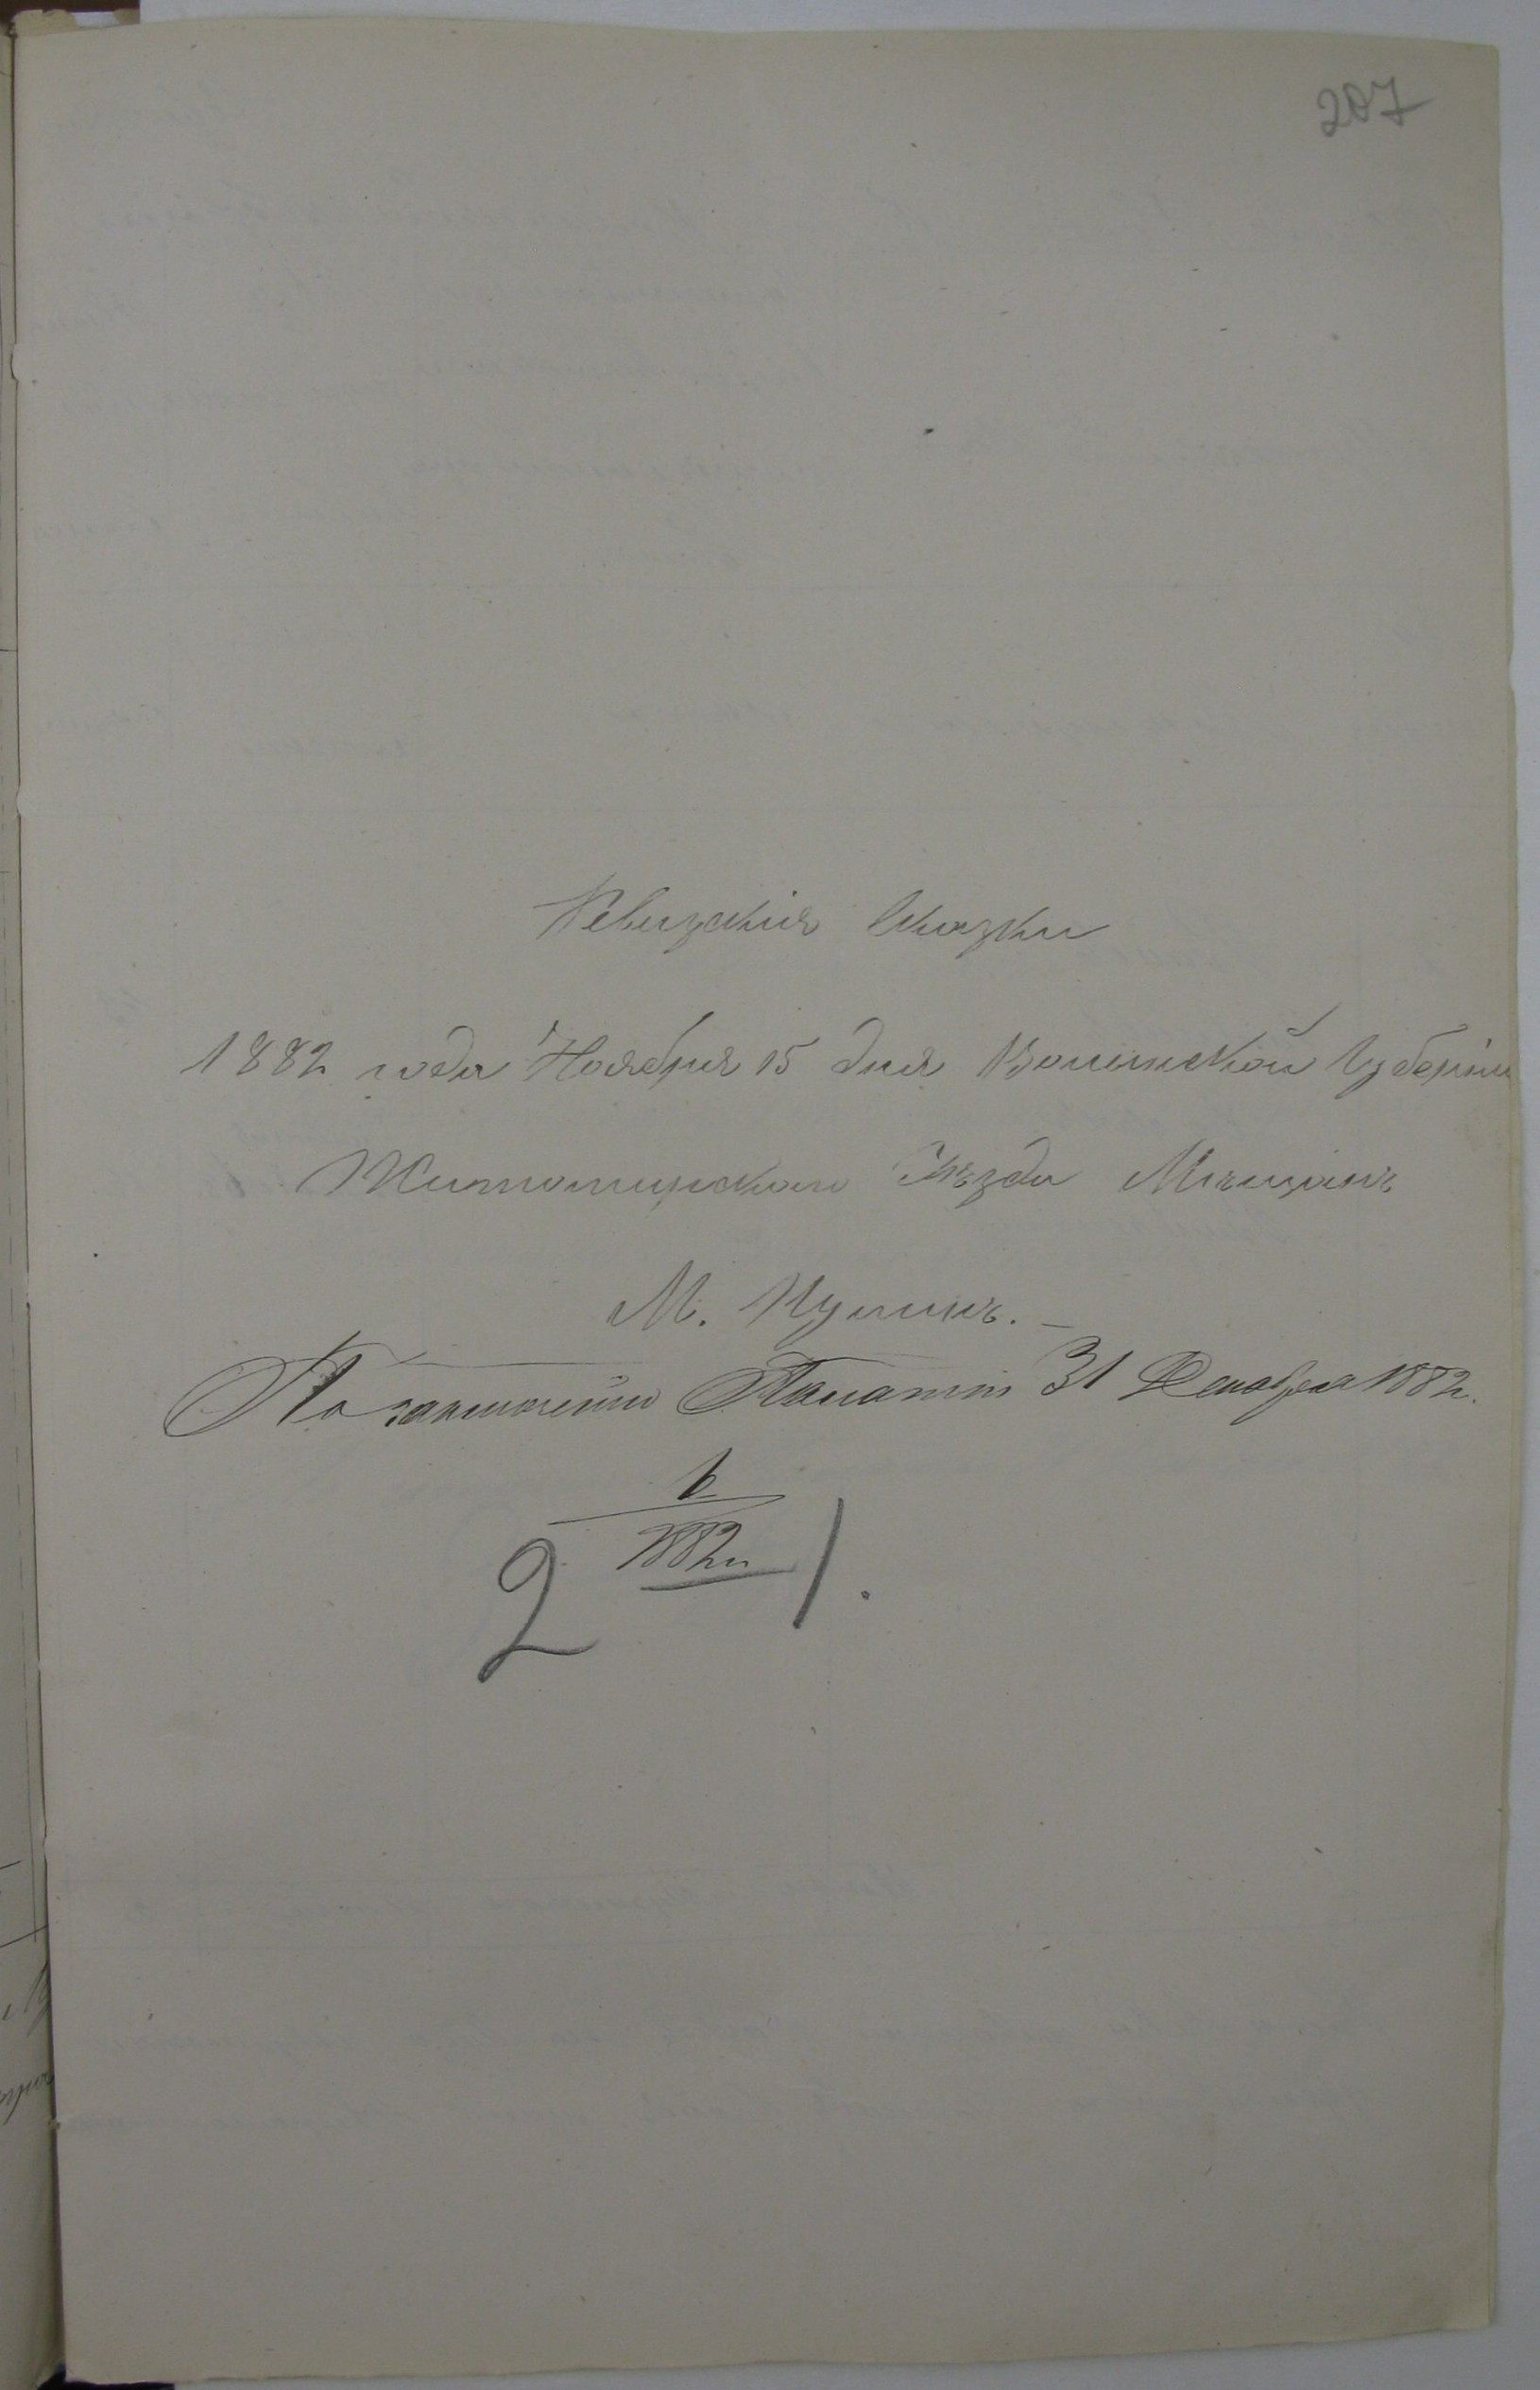 207
Ревизскія Сказки
1882 года Ноября 15 дня Волынской Губерніи
Житомирскаго Уѣзда Мѣщанъ
М. Пулинъ.
По заключенію Палаты 31 Декабря 1882.
1882
2 1.